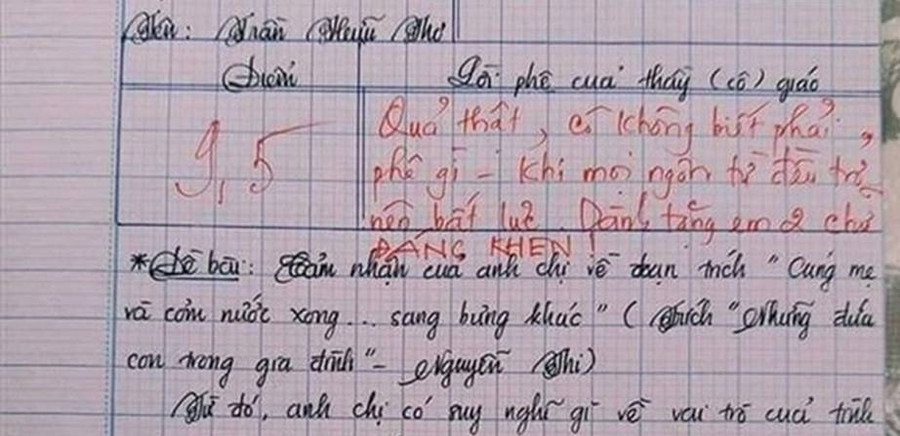 Tên: Trần Huỳnh Thơ
Điểm
Lời phê của thầy (cô) giáo
9,5
Quả thật, cô không biết phải
phê gì - khi mọi ngôn từ đều trở
nên bất lực. Dành tặng em 2 chữ
ĐÁNG KHEN!
*Đề bài: Cảm nhận của anh chị về đoạn trích "Cúng mẹ
và cơm nước xong... sang bưng khác" (Trích "Những đứa
con trong gia đình" - Nguyễn Thi)
Từ đó, anh chị có suy nghĩ gì về vai trò của tình